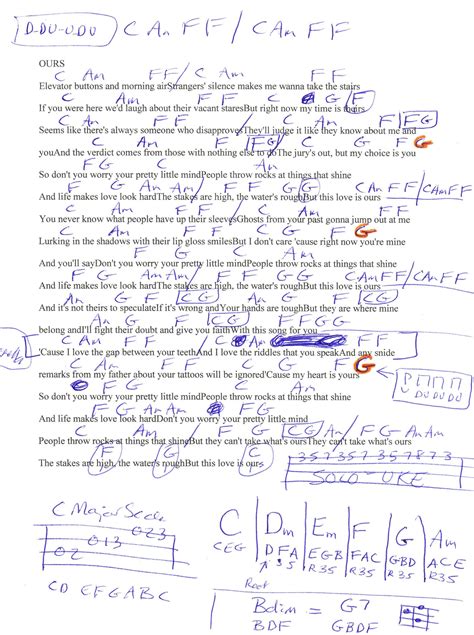 D-DU-UDU C Am F F / C Am F F
OURS
C Am F F / C Am F F
Elevator buttons and morning airStrangers' silence makes me wanna take the stairs
C Am F F C Am F
If you were here we'd laugh about their vacant staresBut right now my time is theirs
C Am F F C Am F FG
Seems like there's always someone who disapprovesThey'll judge it like they know about me and
C Am F FG C Am F G
youAnd the verdict comes from those with nothing else to doThe jury's out, but my choice is you
F G C Am F G
So don't you worry your pretty little mindPeople throw rocks at things that shine
F G Am Am F G G C Am F F / C Am F F
And life makes love look hardThe stakes are high, the water's roughBut this love is ours
C Am F F C Am F F
You never know what people have up their sleevesGhosts from your past gonna jump out at me
C Am F F C Am F G
Lurking in the shadows with their lip gloss smilesBut I don't care 'cause right now you're mine
F G C Am F G
And you'll sayDon't you worry your pretty little mindPeople throw rocks at things that shine
F G Am Am F G C Am F F / C Am F F
And life makes love look hardThe stakes are high, the water's roughBut this love is ours
Am G F CG Am G F CG
And it's not theirs to speculateIf it's wrong andYour hands are toughBut they are where mine
Am G F CG F F G G
belong andI'll fight their doubt and give you faithWith this song for you
C Am
'Cause I love the gap between your teethAnd I love the riddles that you speakAnd any snide
C Am F F C Am F G
remarks from my father about your tattoos will be ignored'Cause my heart is yours
F G C Am F G
So don't you worry your pretty little mindPeople throw rocks at things that shine
F G Am Am F G
And life makes love look hardDon't you worry your pretty little mind
C Am F G CG Am F G Am Am
People throw rocks at things that shineBut they can't take what's oursThey can't take what's ours
F G C
The stakes are high, the water's roughBut this love is ours
357357357873
SOLO - UKE
C Major Scale
023
013
02
CD EFGABC
C Dm Em F G Am
CEG DFA EGB FAC GBD ACE
R35 R35 R35 R35
Root
Bdim = G7
BDF GBDF